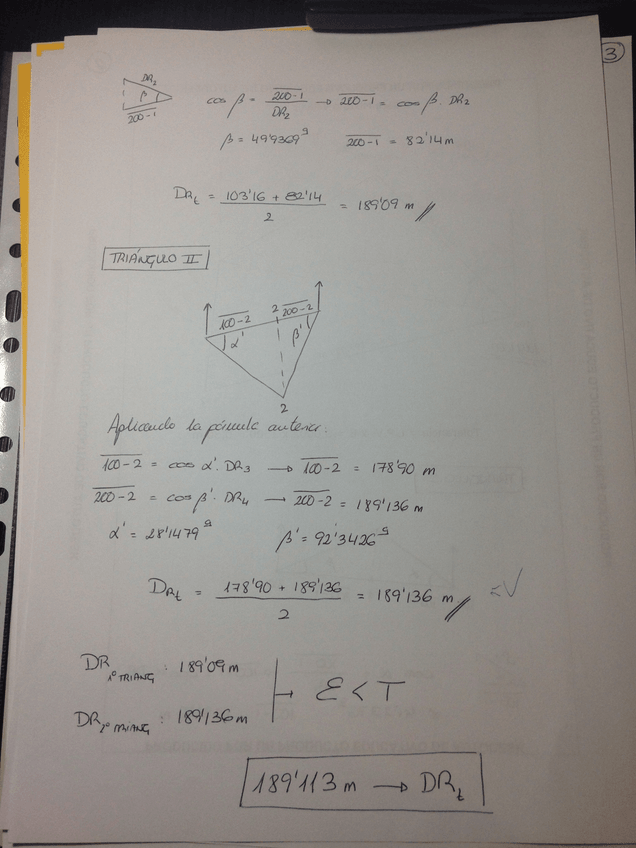 3
DR₂
β
200-1
cos β = 200-1 / DR₂ → 200-1 = cos β · DR₂
β = 49'9369ᵍ 200-1 = 82'14 m
DRt = 103'16 + 82'14 / 2 = 189'09 m
TRIÁNGULO II
100-2 2 200-2
α' β'
2
Aplicando la fórmula anterior:
100-2 = cos α' · DR₃ → 100-2 = 178'90 m
200-2 = cos β' · DR₄ → 200-2 = 189'136 m
α' = 28'1479ᵍ β' = 92'3426ᵍ
DRt = 178'90 + 189'136 / 2 = 189'136 m
DR 1º TRIANG : 189'09 m
→ E < T
DR 2º TRIANG : 189'136 m
189'113 m → DRt